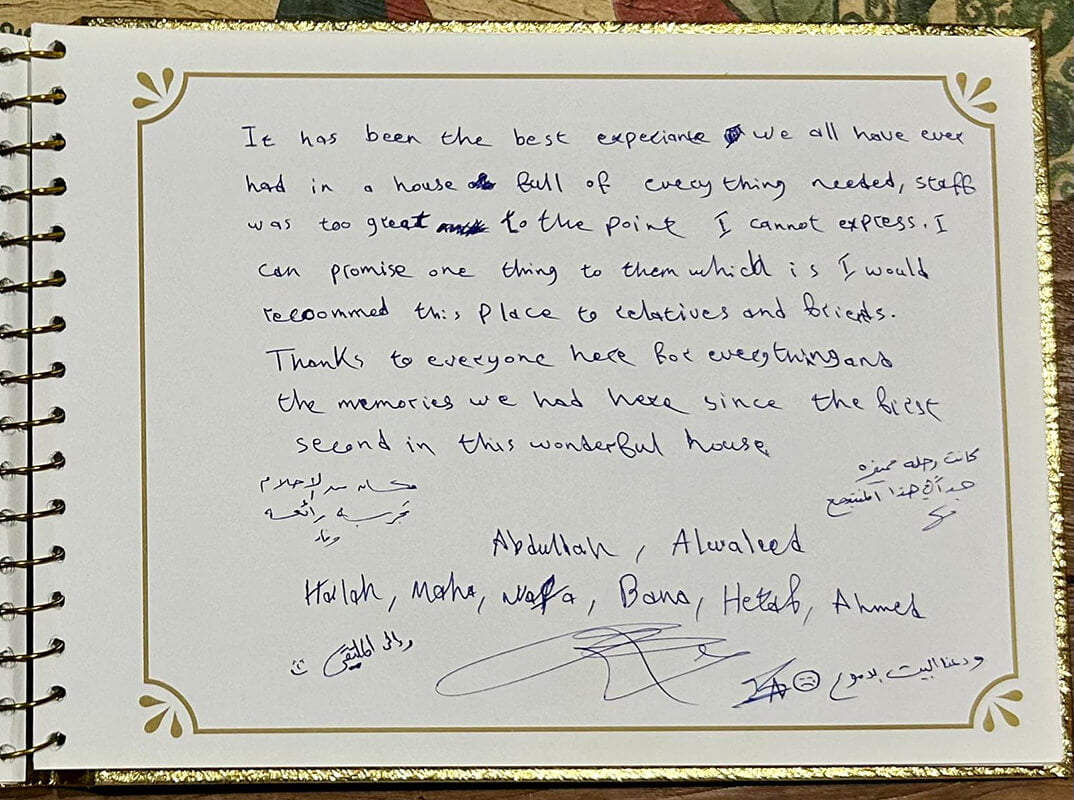 It has been the best experiance we all have ever
had in a house full of everything needed, staff
was too great to the point I cannot express. I
can promise one thing to them which is I would
recoommed this place to relatives and friends.
Thanks to everyone here for everything and
the memories we had here since the first
second in this wonderful house.
كانت رحله مميزه
جداً في هذا المنتجع
مكان من الاحلام
تجربه رائعه
Abdullah, Alwaleed
Hailah, Maha, Bana, Hetab, Ahmed
والى الملتقى
ودعنا البيت بدموع